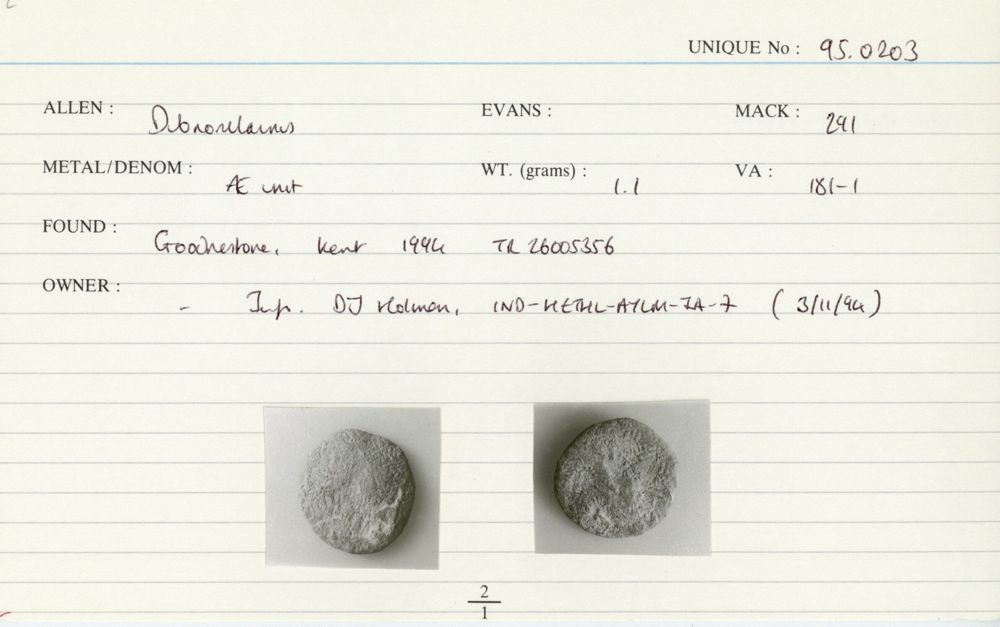 UNIQUE No : 95.0203
ALLEN : Dubnovellaunus EVANS : MACK : 291
METAL/DENOM : Æ unit WT. (grams) : 1.1 VA : 181-1
FOUND : Goodnestone, Kent 1994 TR 26005356
OWNER : - Inf. DJ Holman, IND- -IA-7 (3/11/94)
2
1